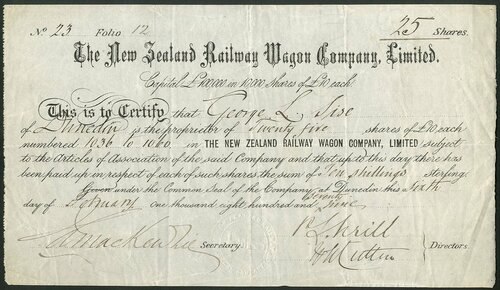 No 23 Folio 12 25 Shares.
The New Zealand Railway Wagon Company, Limited.
Capital £100,000 in 10,000 Shares of £10 each
This is to Certify that George L. Sise
of Dunedin is the proprietor of Twenty five shares of £10 each
numbered 1036 to 1060 in THE NEW ZEALAND RAILWAY WAGON COMPANY, LIMITED subject
to the Articles of Association of the said Company and that up to this day there has
been paid up in respect of each of such shares the sum of Ten shillings Sterling.
Given under the Common Seal of the Company at Dunedin this
day of February one thousand eight hundred and seventy nine
Secretary.
Directors.